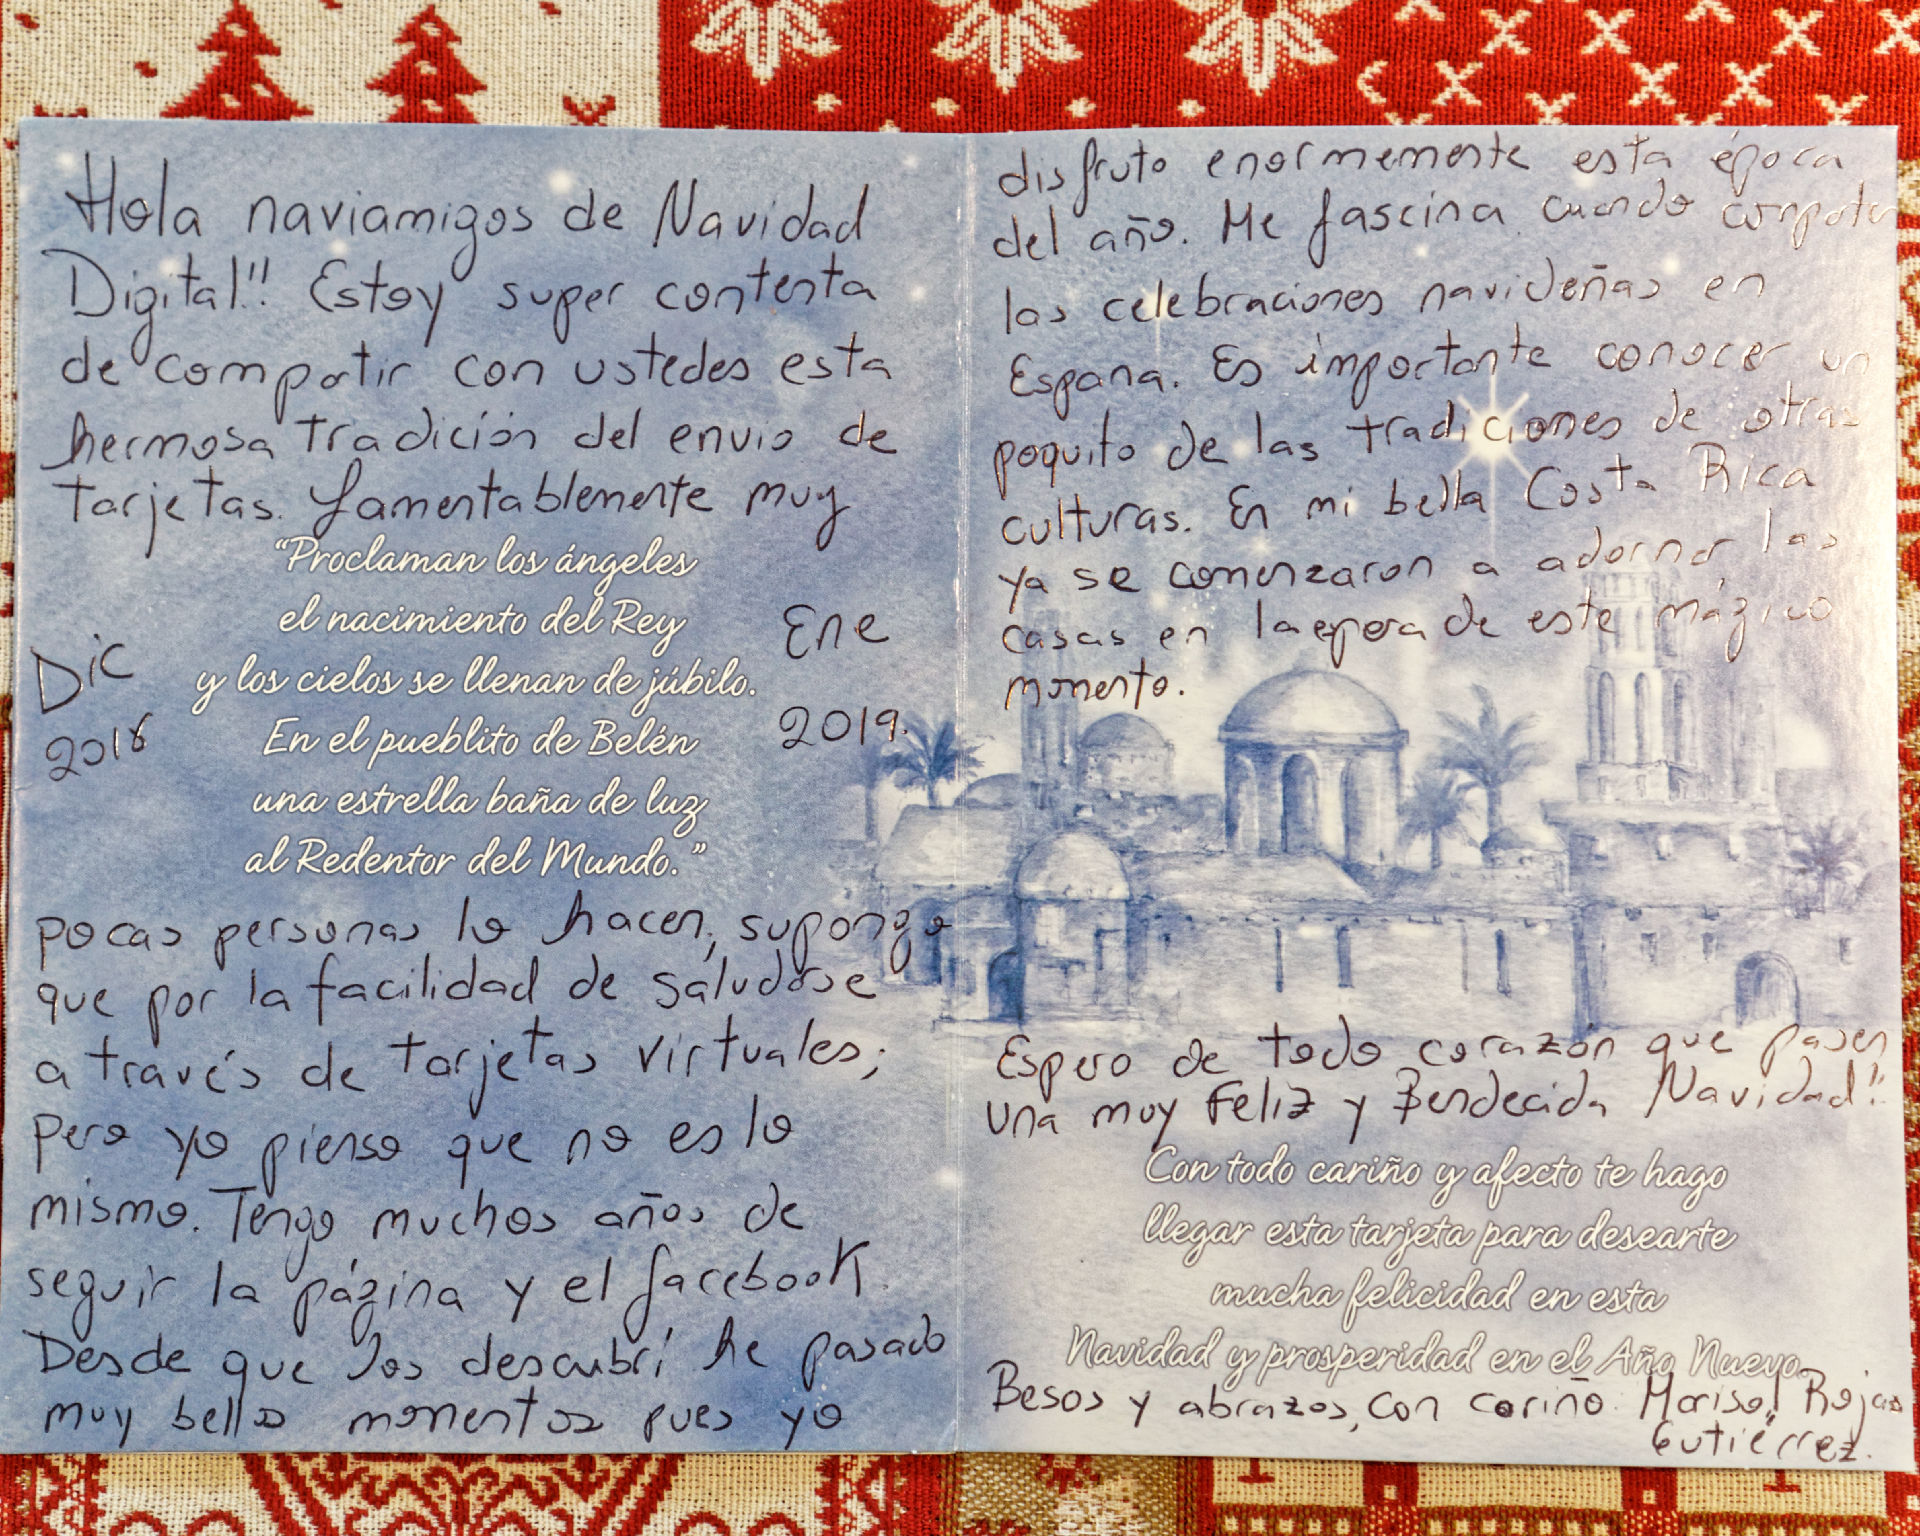 Hola naviamigos de Navidad
Digital!! Estoy super contenta
de compartir con ustedes esta
hermosa tradición del envio de
tarjetas. Lamentablemente muy
“Proclaman los ángeles
el nacimiento del Rey
y los cielos se llenan de júbilo.
En el pueblito de Belén
una estrella baña de luz
al Redentor del Mundo.”
Dic
2018
Ene
2019.
pocas personas lo hacen, supongo
que por la facilidad de saludarse
a través de tarjetas virtuales;
pero yo pienso que no es lo
mismo. Tengo muchos años de
seguir la página y el facebook.
Desde que los descubrí he pasado
muy bellos momentos pues yo
disfruto enormemente esta época
del año. Me fascina cuando
las celebraciones navideñas en
España. Es importante conocer un
poquito de las tradiciones de otras
culturas. En mi bella Costa Rica
ya se comenzaron a adornar las
casas en la espera de este mágico
momento.
Espero de todo corazón que pasen
una muy Feliz y Bendecida Navidad!!
Con todo cariño y afecto te hago
llegar esta tarjeta para desearte
mucha felicidad en esta
Navidad y prosperidad en el Año Nuevo.
Besos y abrazos, con cariño: Marisol Rojas
Gutiérrez.